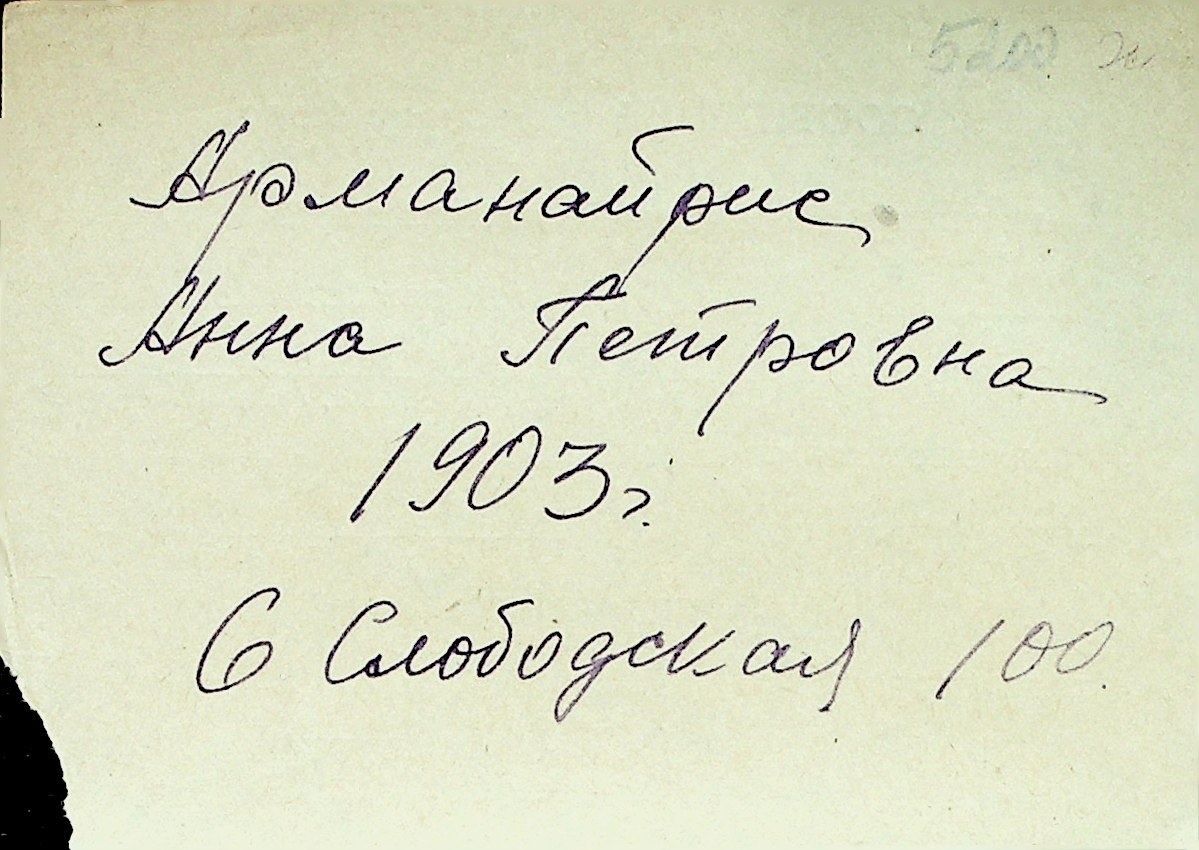 5200
Арманайрис
Анна Петровна
1903г.
6 Слободская 100.